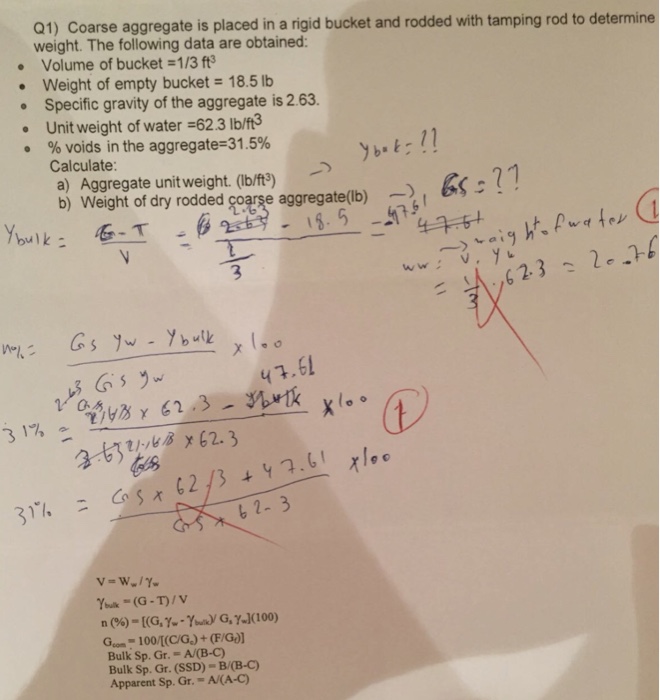 Q1) Coarse aggregate is placed in a rigid bucket and rodded with tamping rod to determine
weight. The following data are obtained:
• Volume of bucket =1/3 ft³
• Weight of empty bucket = 18.5 lb
• Specific gravity of the aggregate is 2.63.
• Unit weight of water =62.3 lb/ft3
• % voids in the aggregate=31.5%
Calculate:
→ γbulk = ??
a) Aggregate unit weight. (lb/ft³)
b) Weight of dry rodded coarse aggregate(lb) → Gs = ??
γbulk = G-T / V = 2.63 - 18.5 / 1/3 = -47.61
1
→ weight of water
ww = V. γw
= 1/3 . 62.3 = 20.76
n% = Gs γw - γbulk / Gs γw x 100
2.63 x 62.3 - 47.61 / x 62.3 x 100
31% =
1
31% = Gs x 62.3 + 47.61 / Gs x 62.3 x100
V = Ww / γw
γbulk = (G - T) / V
n (%) = [(Gs γw - γbulk)/ Gs γw](100)
Gcom = 100/[(C/Gc) + (F/Gf)]
Bulk Sp. Gr. = A/(B-C)
Bulk Sp. Gr. (SSD) = B/(B-C)
Apparent Sp. Gr. = A/(A-C)